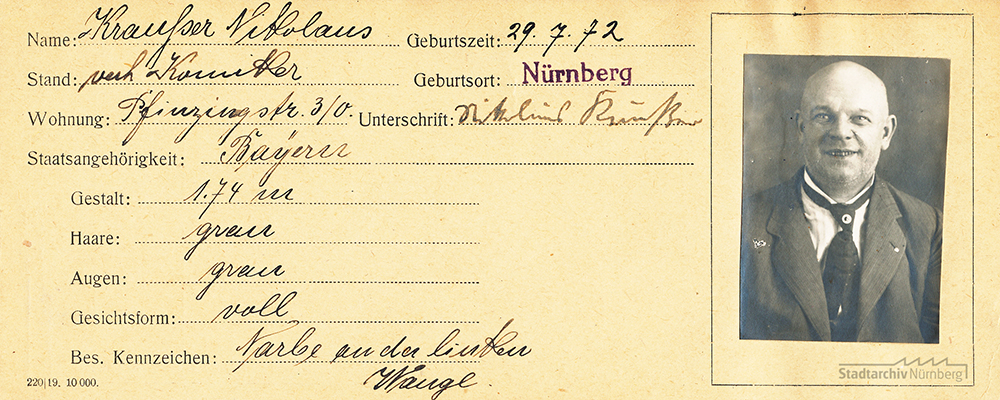 Name: Kraußer Nikolaus Geburtszeit: 29. 7. 72
Stand: verh. Komiker Geburtsort: Nürnberg
Wohnung: Pfinzingstr. 3/0. Unterschrift: Nikolaus Kraußer
Staatsangehörigkeit: Bayern
Gestalt: 1.74 m
Haare: grau
Augen: grau
Gesichtsform: voll
Bes. Kennzeichen: Narbe an der linken
Wange.
220|19. 10 000.
Stadtarchiv Nürnberg